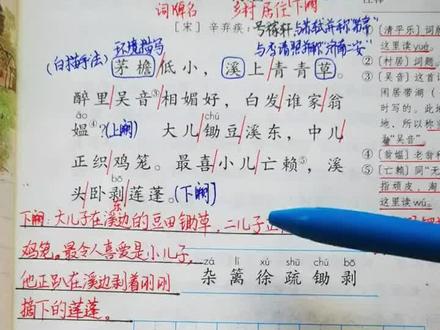 词牌名 乡村居住 下阕
[宋] 辛弃疾:号稼轩 与苏轼并称"苏辛"
(白描手法) 环境描写 与李清照并称"济南二安"
茅檐低小,溪上青青草。
醉里吴音③相媚好,白发谁家翁
ǎo
媪④?(上阕) 大儿/锄豆溪东,中儿
wú
正织/鸡笼。最喜/小儿/亡赖⑤,溪
bō
头/卧剥莲蓬。(下阕)
东
下阕:大儿子在溪边的豆田锄草,二儿子正
鸡笼,最令人喜爱是小儿子,
zá lí xú shū chú bāo
他正趴在溪边剥着刚刚 杂 篱 徐 疏 锄 剥
摘下的莲蓬。
① [清平乐] 词
这里读yuè。
② [村居] 题
③ [吴音] 这首
闲居带湖(
时写的。此
地,所以称
"吴音"。
④ [翁媪] 老翁
⑤ [亡赖] 同"无
指顽皮、淘
这里读wú。